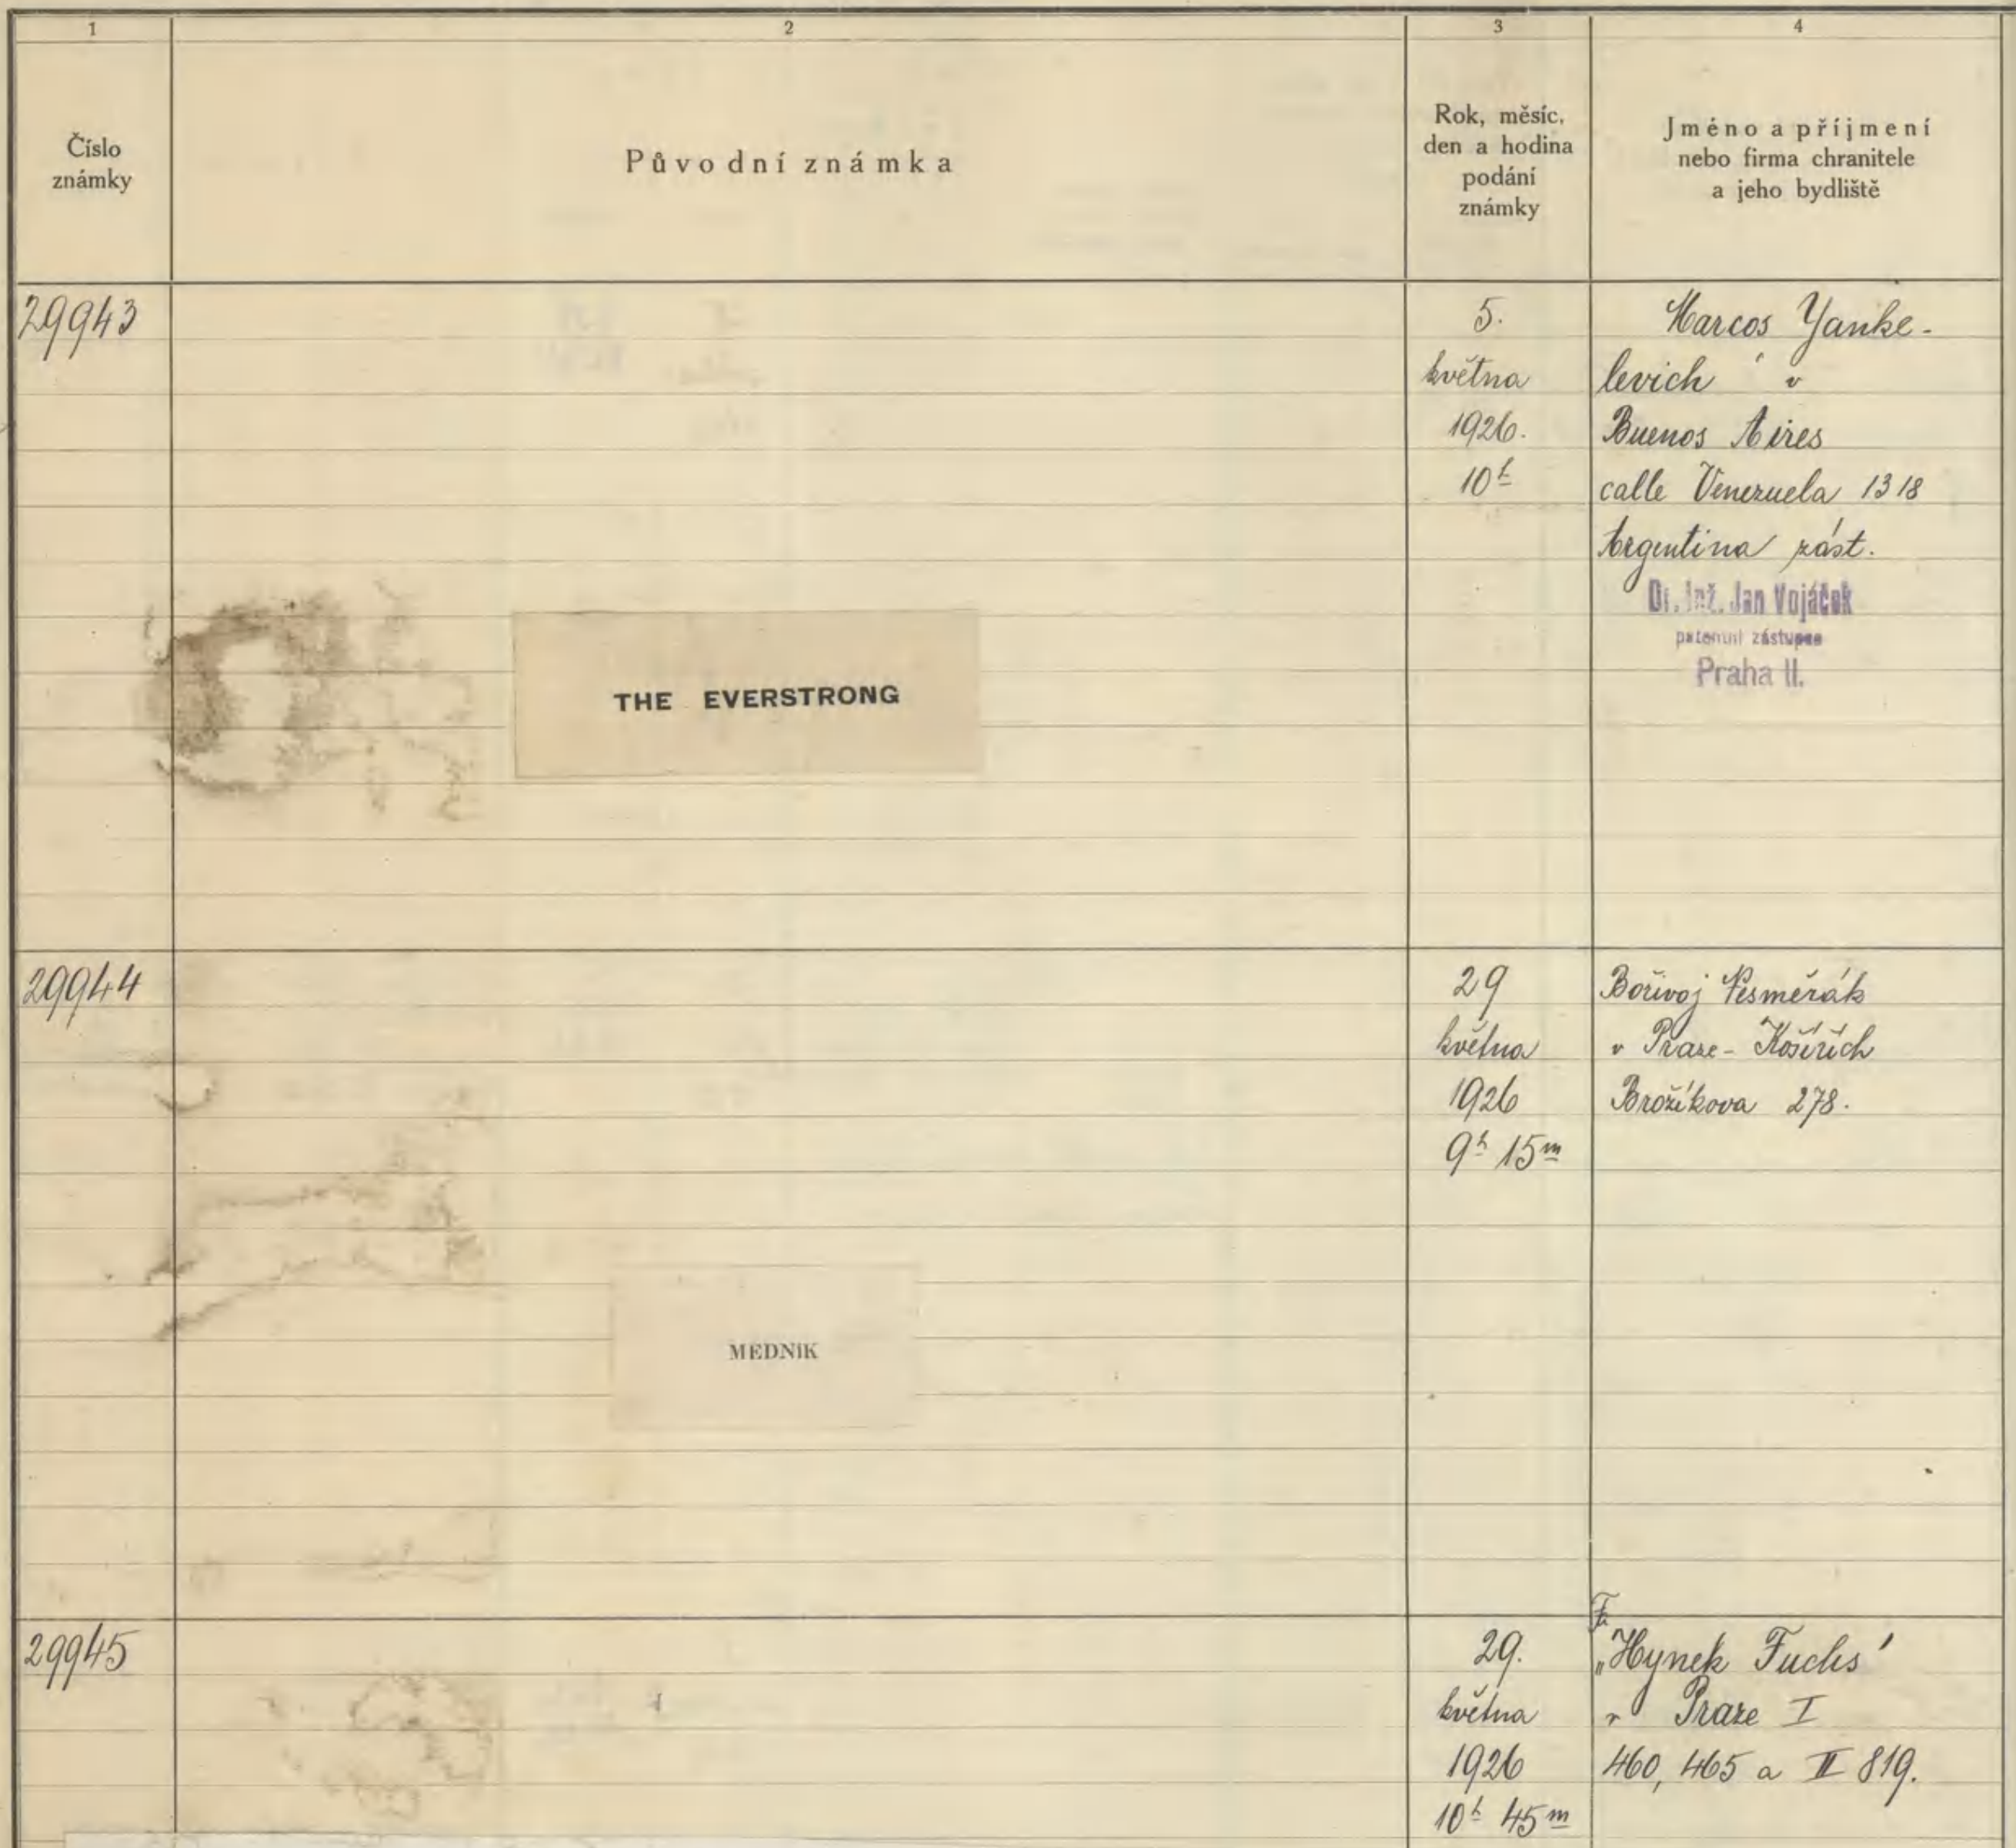 1
2
3
4
Číslo
známky
Původní známka
Rok, měsíc,
den a hodina
podání
známky
Jméno a příjmení
nebo firma chranitele
a jeho bydliště
29943
5.
května
1926.
10h
Marcos Yanke-
levich v
Buenos Aires
calle Venezuela 1318
Argentina zást.
Dr. Inž. Jan Vojáček
patentní zástupce
Praha II.
THE EVERSTRONG
29944
29
května
1926
9h 15m
Bořivoj Nesměrák
v Praze - Košířích
Brožíkova 278.
MEDNIK
29945
29.
května
1926
10h 45m
Fa
„Hynek Fuchs"
v Praze I
460, 465 a II 819.